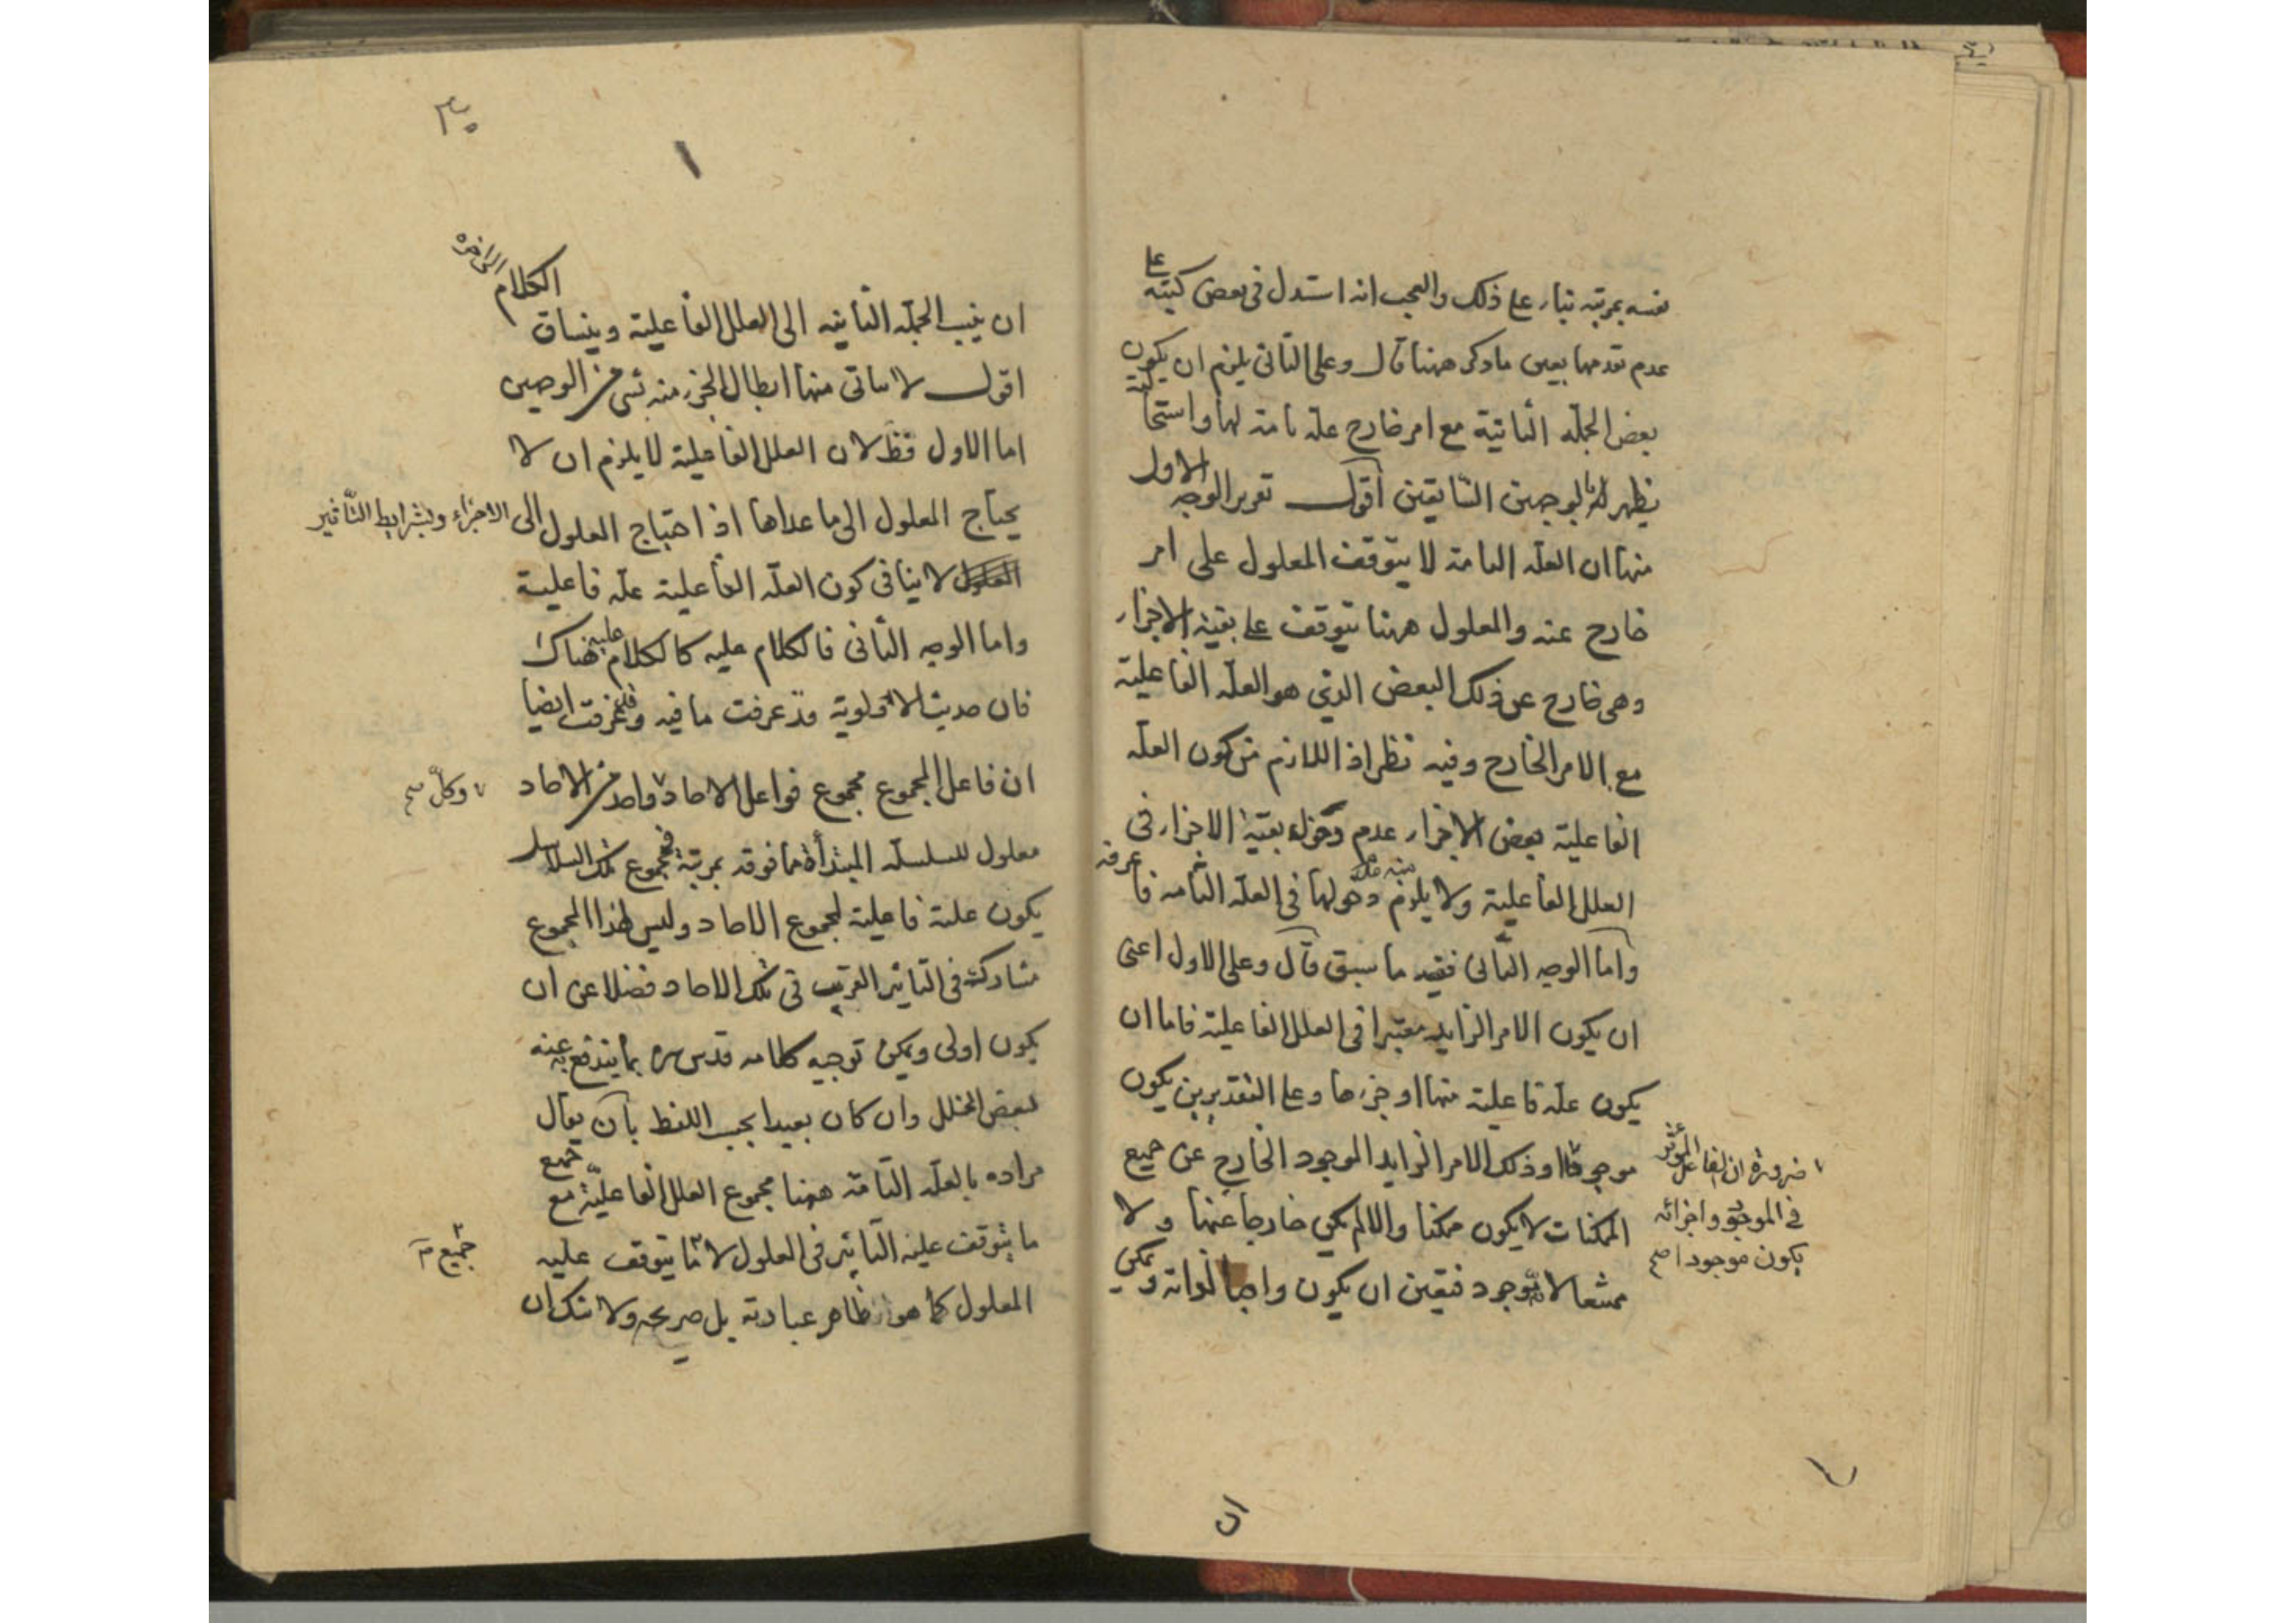 نفسه بمرتبة بناء على ذلك والعجب انه استدل فى بعض كتبه على
عدم تقدمها بعين ما ذكر ههنا قال وعلى الثانى يلزم ان يكون
بعض الجملة الثانية مع امر خارج علة تامة لها واستحالته
يظهر بالوجهين السابقين اقول تقرير الوجه الاول
منها ان العلة التامة لا يتوقف المعلول على امر
خارج عنه والمعلول ههنا يتوقف على بقية الاجزاء
وهى خارج عن ذلك البعض الذى هو العلة الفاعلية
مع الامر الخارج وفيه نظر اذ اللازم من كون العلة
الفاعلية بعض الاجزاء عدم دخول بقية الاجزاء فى
العلل الفاعلية ولا يلزم منه عدم دخولها فى العلة التامة فاعرفه
واما الوجه الثانى ففيه ما سبق قال وعلى الاول اعنى
ان يكون الامر الزايد معتبرا فى العلل الفاعلية فاما ان
يكون علة فاعلية منها او جزءها وعلى التقديرين يكون
موجودا وذلك الامر الزايد الموجود الخارج عن جميع
الممكنات لا يكون ممكنا والا لم يكن خارجا عنها ولا
ممتنعا لانه موجود فتعين ان يكون واجبا لذاته ويمكن
ضرورة ان الفاعل المؤثر
فى الموجود واجزائه
يكون موجودا صح
ان
٣٠
ان ينسب الجملة الثانية الى العلل الفاعلية وينساق الكلام الى اخره
اقول لا يتاتى منها ابطال الجزء منه بشى من الوجهين
اما الاول فظ لان العلل الفاعلية لا يلزم ان لا
يحتاج المعلول الى ما عداها اذ احتياج المعلول الى الاجزاء وشرايط التأثير
المعلول لا ينافى كون العلة الفاعلية علة فاعلية
واما الوجه الثانى فالكلام عليه كالكلام عليه هناك
فان حديث الاولوية قد عرفت ما فيه وقد عرفت ايضا
ان فاعل المجموع مجموع فواعل الاحاد واحد من الاحاد
وكل صح
معلول للسلسلة المبتدأة مما فوقه بمرتبة فمجموع تلك السلاسل
يكون علة فاعلية لمجموع الاحاد وليس لهذا المجموع
مشاركة فى التاثير القريب فى تلك الاحاد فضلا عن ان
يكون اولى ويمكن توجيه كلامه قدس سره بما يندفع به عنه
بعض الخلل وان كان بعيدا بحسب اللفظ بان يقال
مراده بالعلة التامة ههنا مجموع العلل الفاعلية مع جميع
ما يتوقف عليه التاثير فى المعلول لا ما يتوقف عليه
جميع
المعلول كما هو ظاهر عبارته بل صريحه ولا شك ان